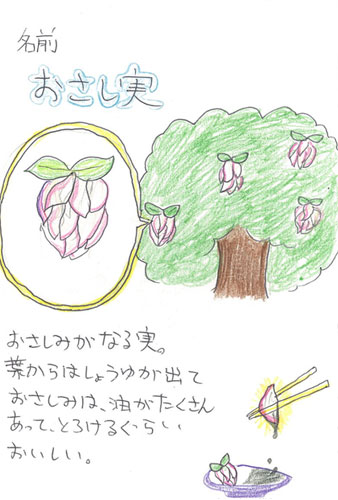 名前
おさし実
おさしみがなる実。
葉からはしょうゆが出て
おさしみは、油がたくさん
あって、とろけるぐらい
おいしい。